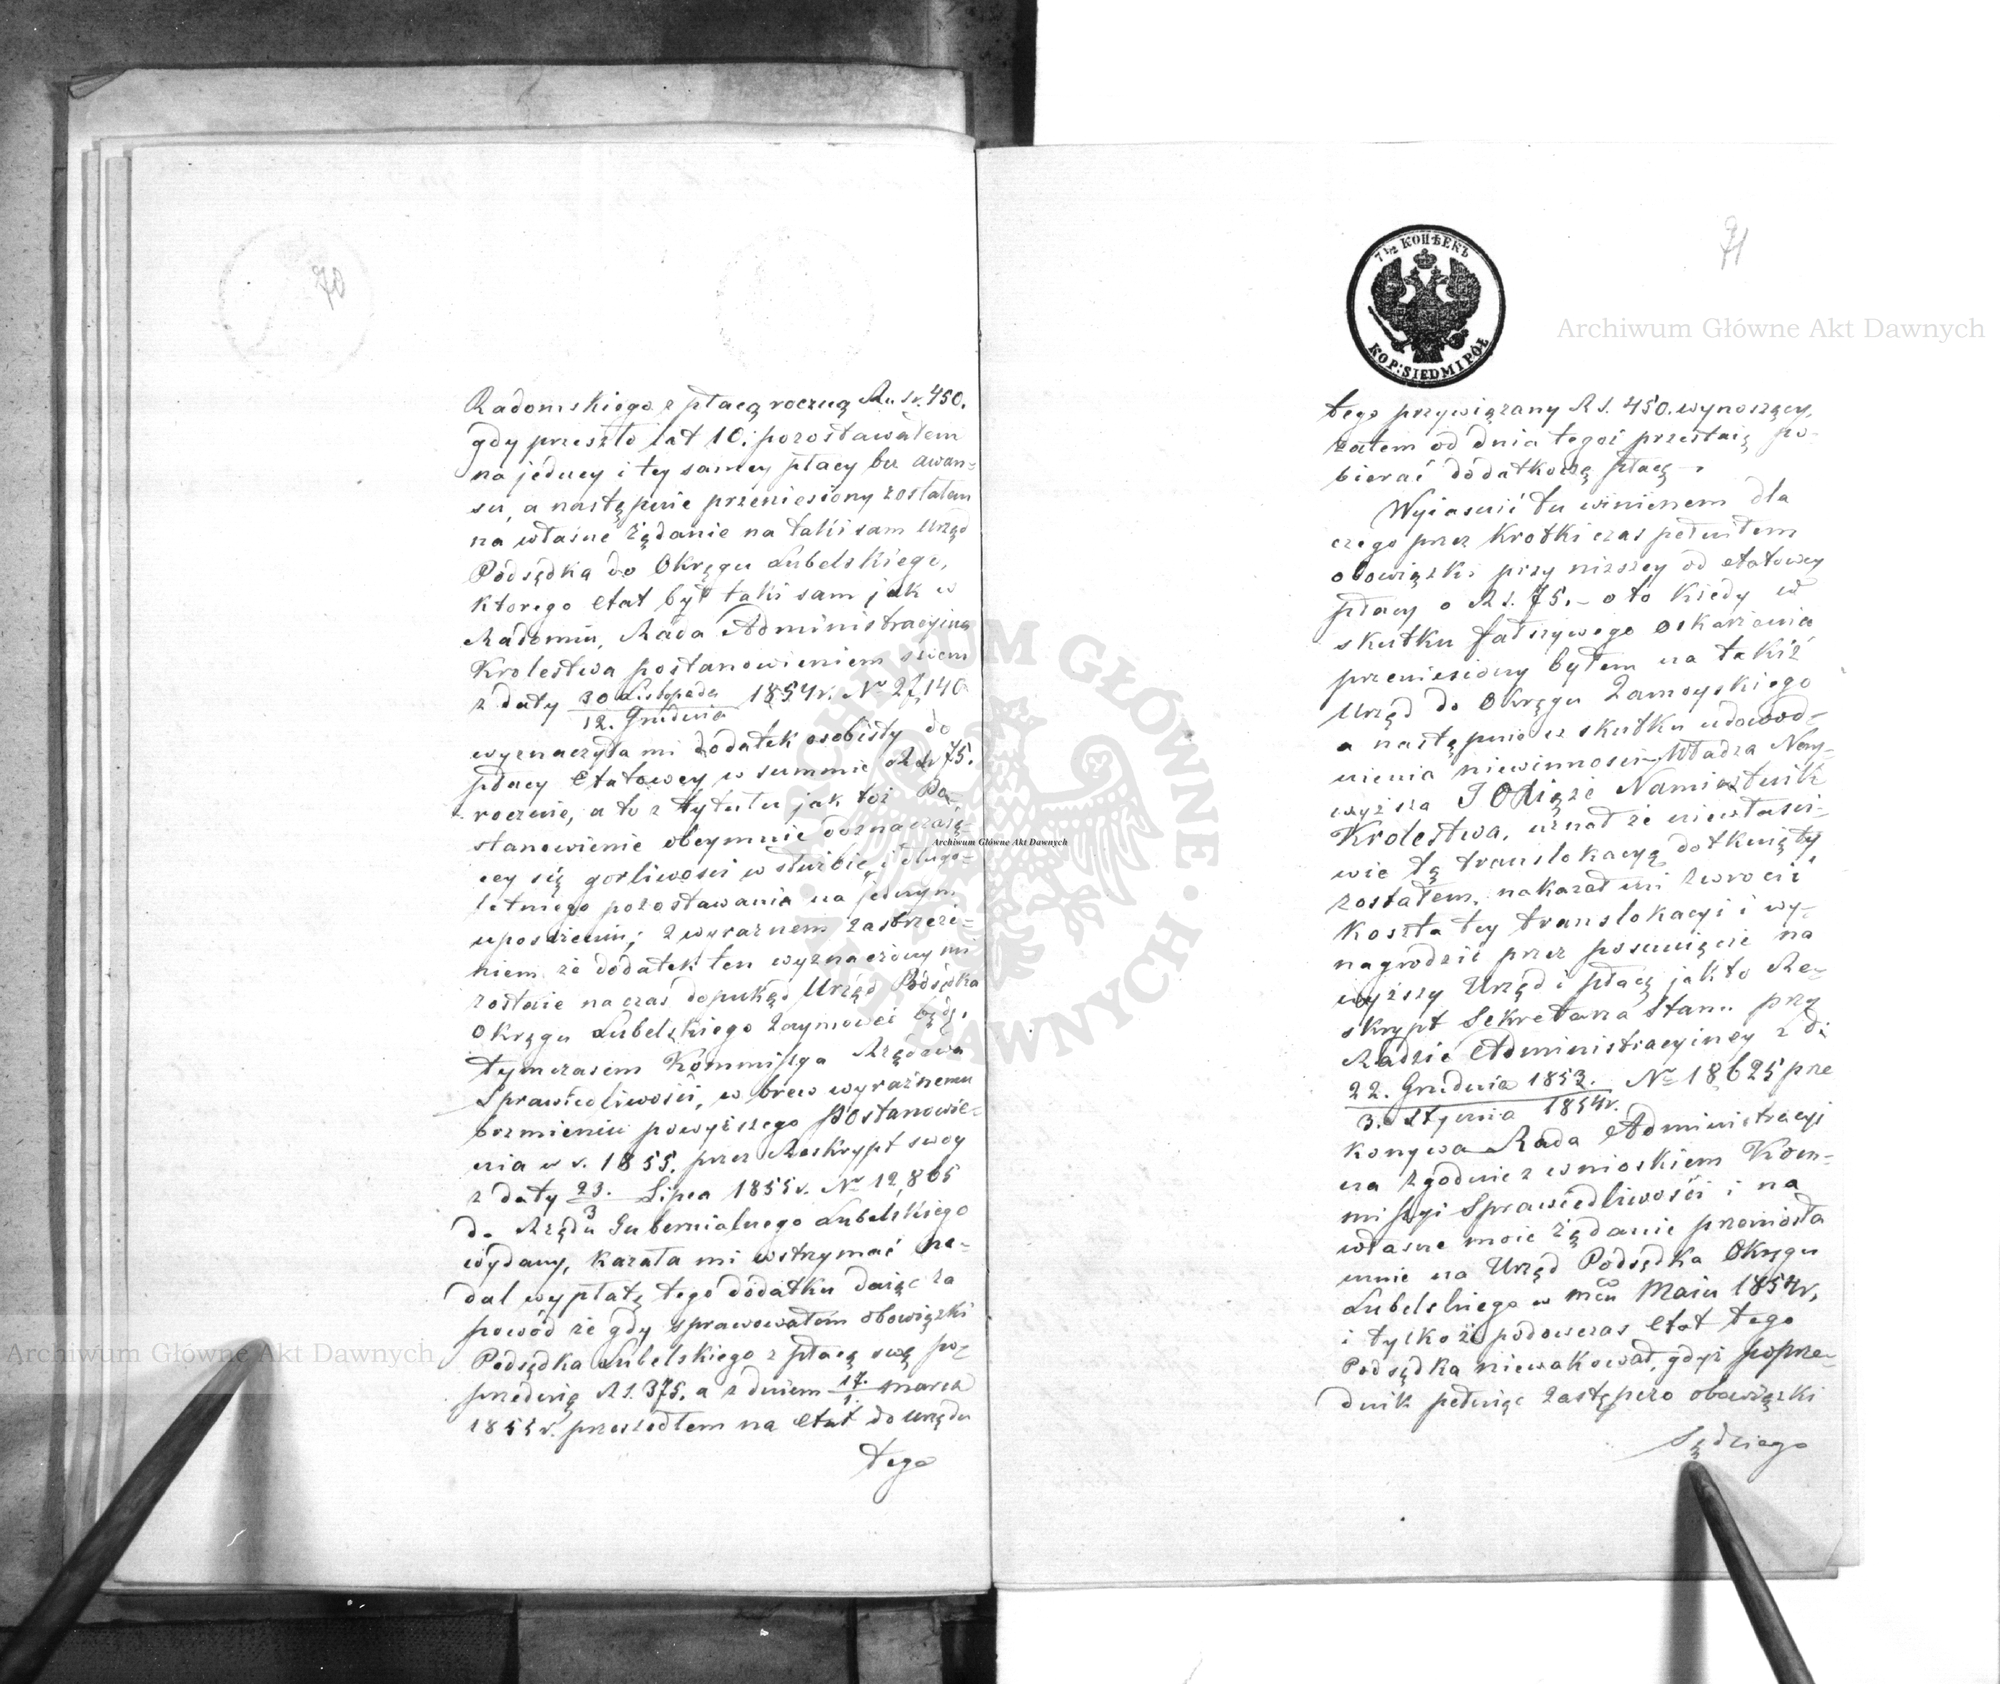 70
Radomskiego z płacą roczną Ru sr. 450.
gdy przeszło lat 10. pozostawałem
na jedney i tey samey płacy bez awan-
su, a następnie przeniesiony zostałem
na własne żądanie na taki sam Urząd
Podsędka do Okręgu Lubelskiego,
ktorego etat był taki sam jak w
Radomiu, Rada Administracyjna
Krolestwa postanowieniem swem
z daty 30 Listopada / 12. Grudnia 1854 r. No 27,140
wyznaczyła mi dodatek osobisty do
płacy etatowey w summie Rsr 75.
rocznie, a to z tytułu jak toż Po-
stanowienie obeymuie odznaczaią-
cey się gorliwości w służbie, i długo-
letniego pozostawania na jednym
uposażeniu; z wyraźnem zastrzeże-
niem że dodatek ten wyznaczony mi
zostaie na czas dopukąd Urząd Podsędka
Okręgu Lubelskiego zaymować będę.
Tymczasem Kommissya Rządowa
Sprawiedliwości, w brew wyraźnemu
brzmieniu powyższego Postanowie-
nia w r. 1855. przez Reskrypt swoy
z daty 23. / 3 Lipca 1855 r. No 12,865
do Rządu Gubernialnego Lubelskiego
wydany, kazała mi wstrzymać na-
dal wypłatę tego dodatku daiąc za
powód że gdy sprawowałem obowiązki
Podsędka Lubelskiego z płacą swą po-
przednią RS. 375. a z dniem 17. / 1. marca
1855 r. przeszedłem na etat do urzędu
tego
71
7 1/2 КОПѢЕКЪ
KOP: SIEDM I PÓŁ
tego przywiązany RS. 450. wynoszący,
zatem od dnia tegoż przestaię po-
bierać dodatkową płacę.
Wyiasnić tu winienem dla
czego przez krotki czas pełniłem
obowiązki przy niższey od etatowey
płacy o RS. 75. – oto kiedy w
skutku fałszywego oskarżenia
przeniesiony byłem na takiż
Urząd do Okręgu Zamoyskiego
a następnie w skutku udowod-
nienia niewinności Władza Nay-
wyższa JO Xiąże Namiestnik
Krolestwa, uznał że niewłaści-
wie tą translokacyą dotknięty
zostałem, nakazał mi zwrocić
koszta tey translokacyi i wy-
nagrodzić przez posunięcie na
wyższy Urząd i płacę jak to Re-
skrypt Sekretarza Stanu przy
Radzie Administracyiney z d.
22. Grudnia 1853. / 3. Stycznia 1854 r. No 18625 prze
konywa Rada Administracyi
na zgodnie z wnioskiem Kom-
missyi Sprawiedliwości i na
własne moie żądanie przeniosła
mnie na Urząd Podsędka Okręgu
Lubelskiego w mcu Maiu 1854 r,
i tylko że podowczas etat tego
Podsędka niewakował, gdyż poprze-
dnik pełniąc zastępczo obowiązki
Sędziego
Archiwum Główne Akt Dawnych
Archiwum Główne Akt Dawnych
Archiwum Główne Akt Dawnych
ARCHIWUM GŁÓWNE · AKT DAWNYCH ·